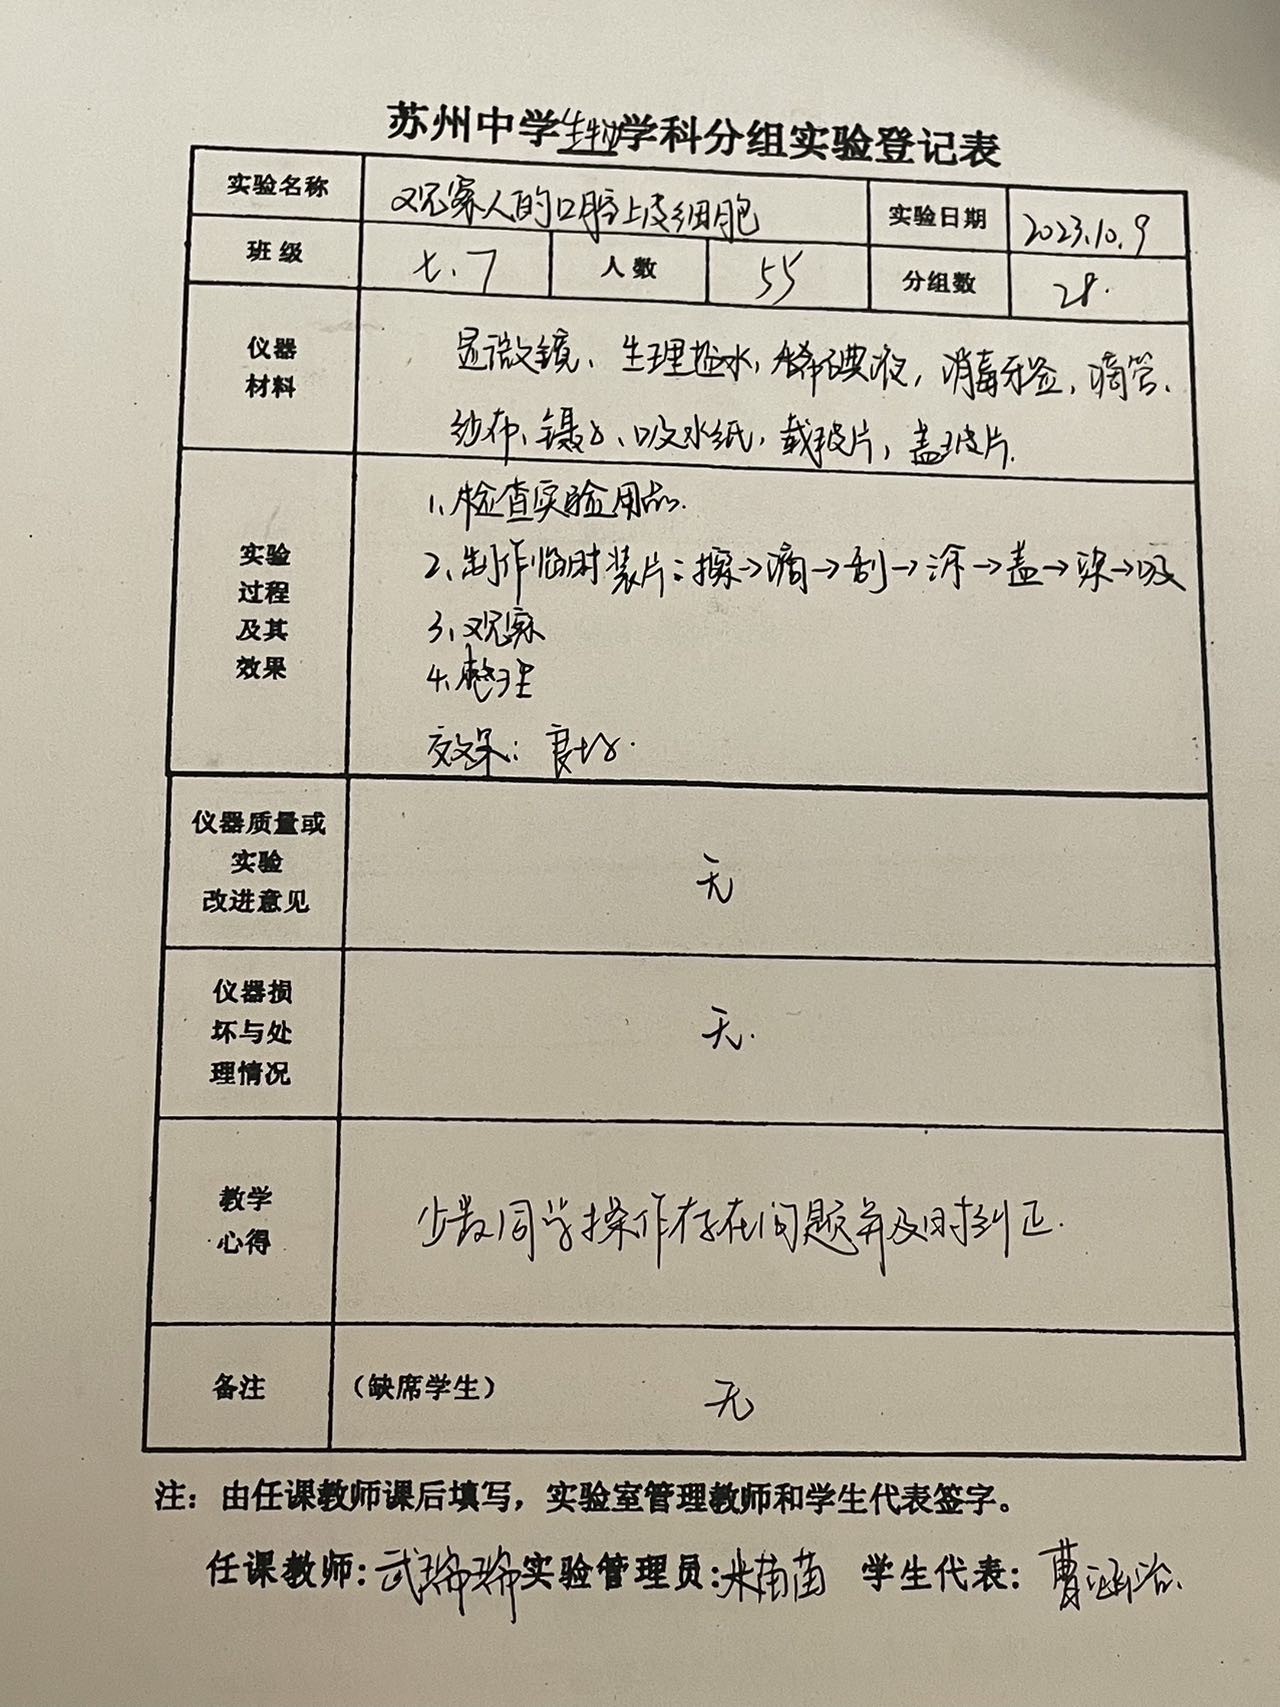 苏州中学生物学科分组实验登记表
实验名称 观察人的口腔上皮细胞 实验日期 2023.10.9
班级 七.7 人数 55 分组数 28.
仪器
材料
显微镜、生理盐水,稀碘液,消毒牙签,滴管、
纱布、镊子、吸水纸,载玻片,盖玻片.
实验
过程
及其
效果
1、检查实验用品.
2、制作临时装片:擦→滴→刮→涂→盖→染→吸
3、观察
4、整理
效果:良好.
仪器质量或
实验
改进意见
无
仪器损
坏与处
理情况
无.
教学
心得
少数同学操作存在问题并及时纠正.
备注 (缺席学生) 无
注:由任课教师课后填写,实验室管理教师和学生代表签字。
任课教师:武瑞瑞 实验管理员:米苗苗 学生代表:曹涵